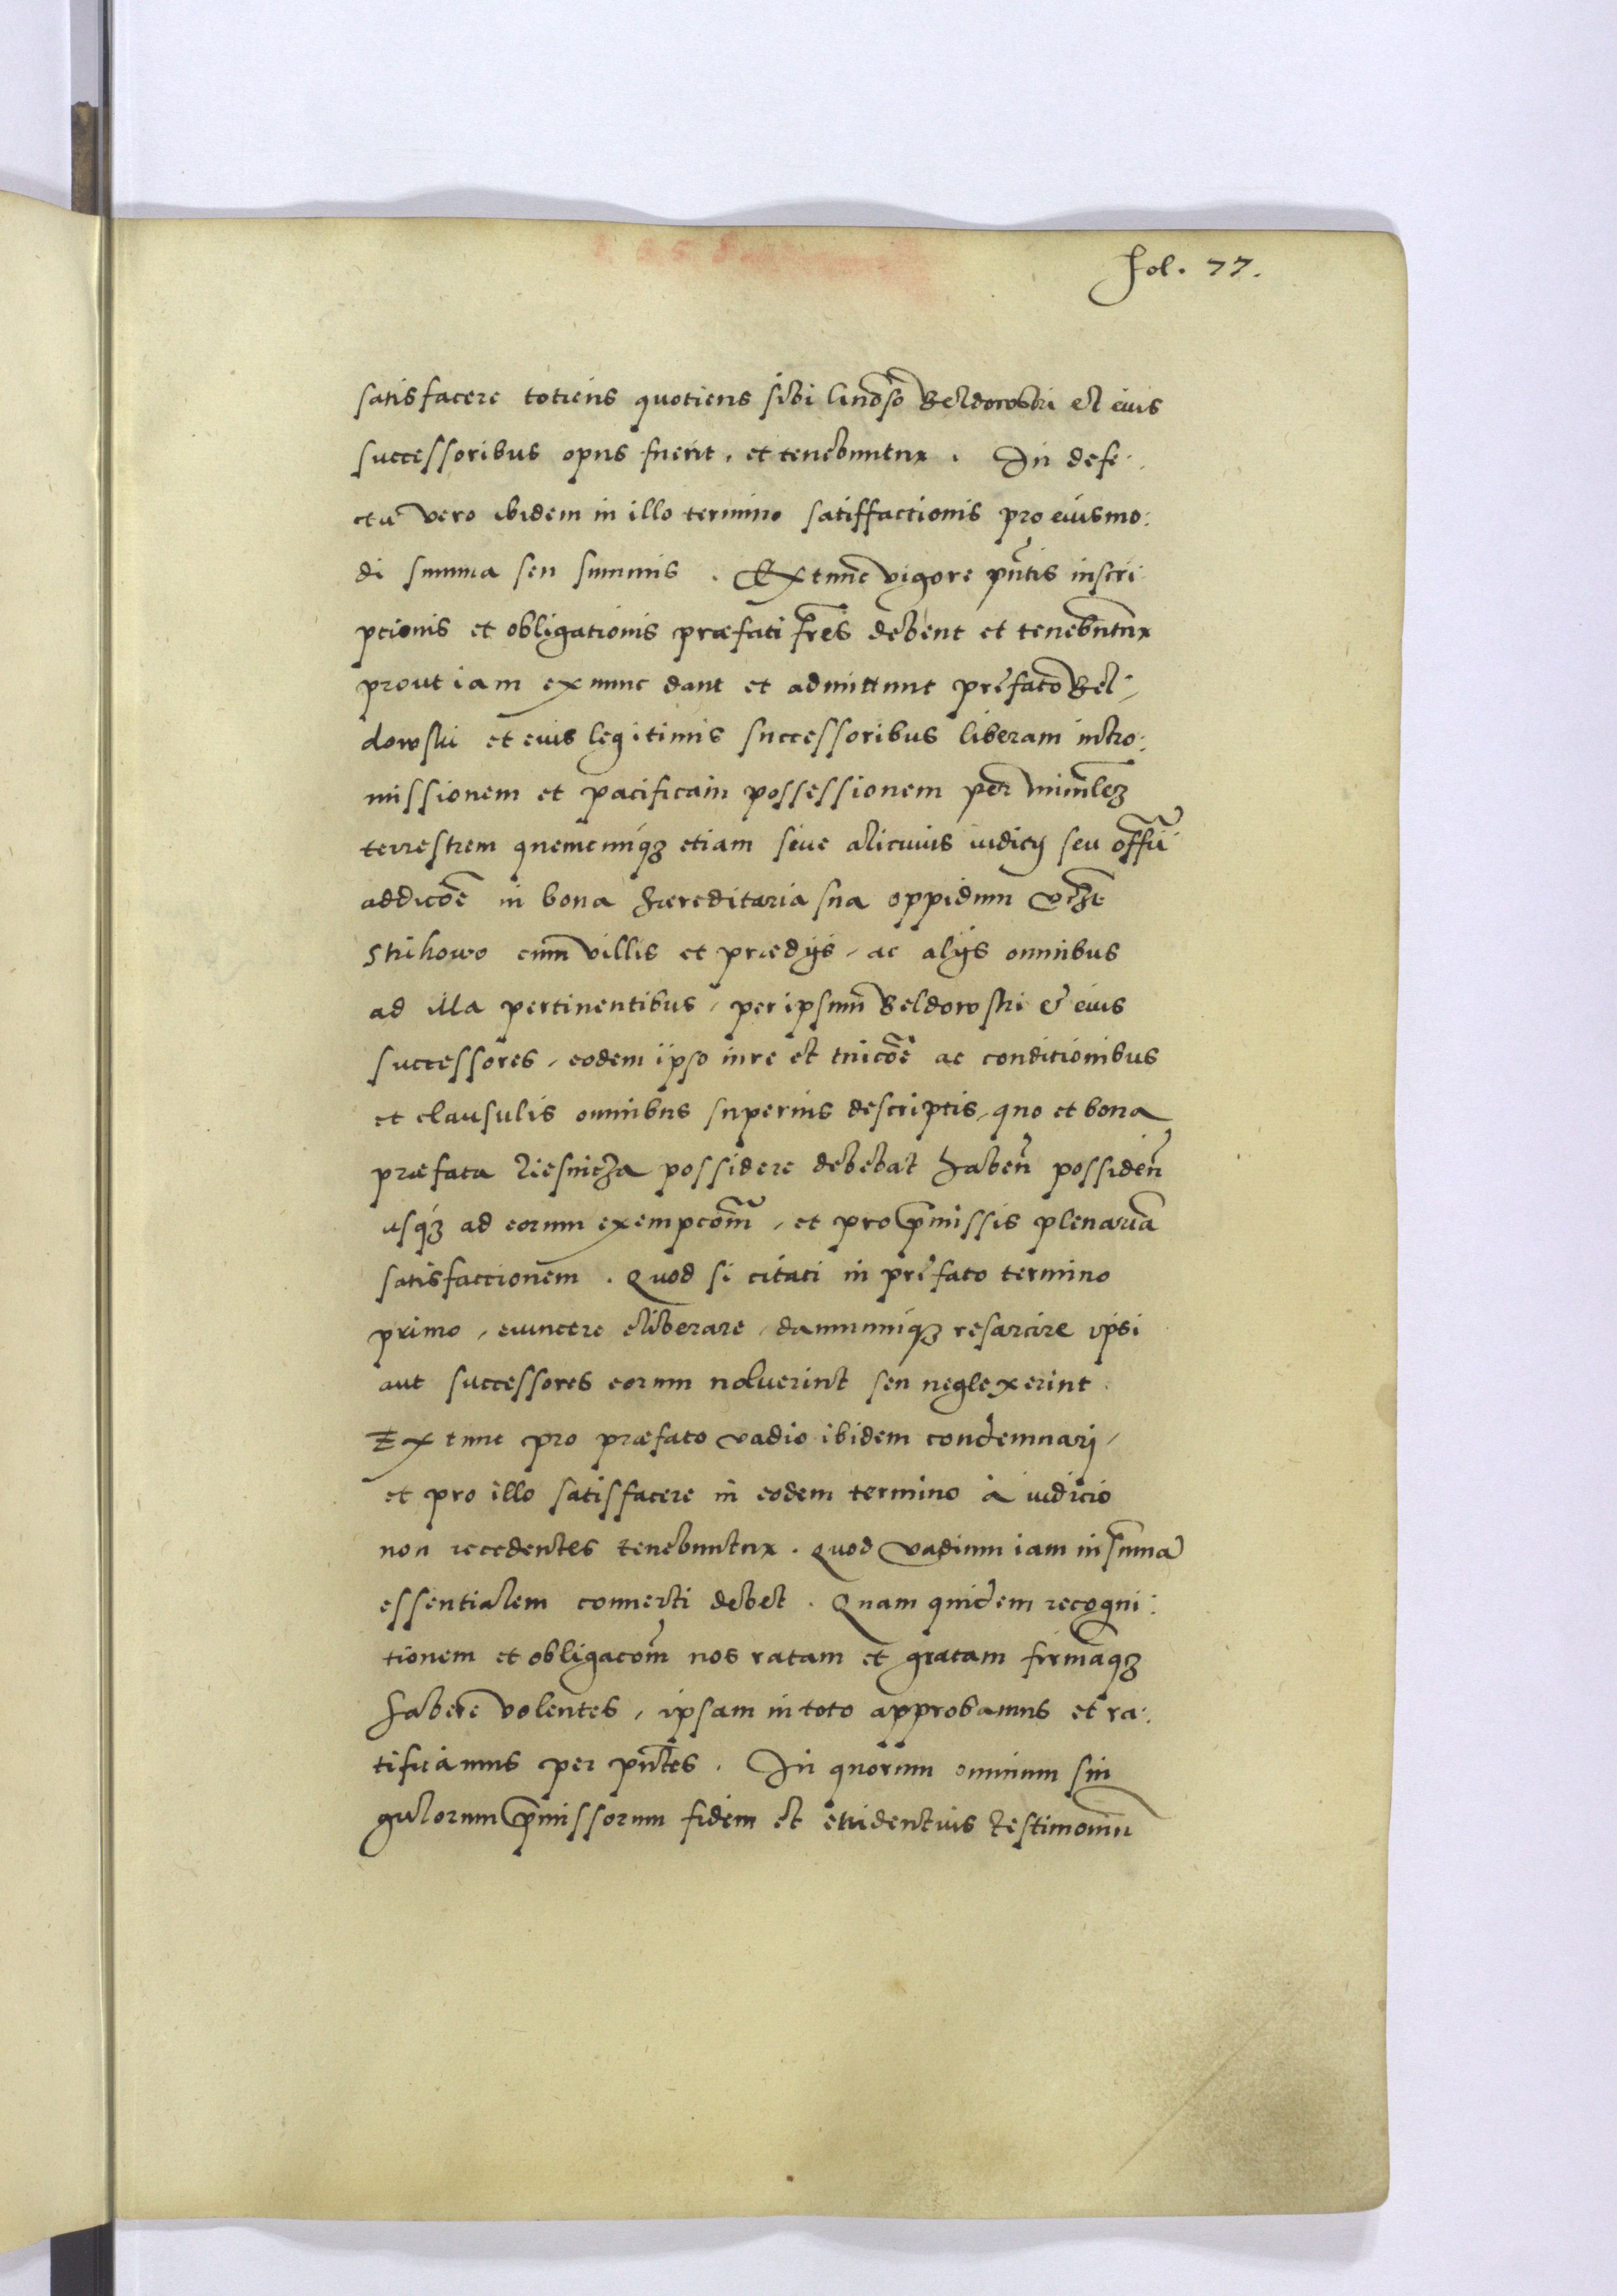 fol. 77.
satisfacere totiens quotiens sibi Beldowski et eius
successoribus opus fuerit, et tenebuntur. In defe:
ctu vero ibidem in illo termino satisfactionis pro eiusmo:
di summa seu summis. Extunc vigore pñtis inscri
ptionis et obligationis præfati frẽs debent et tenebuntur
prout iam ex nunc dant et admittunt præfato Bel:
dowski et eius legitimis successoribus liberam intro:
missionem et pacificam possessionem per
terrestrem quemcunq₃ etiam sine alicuius iudicij seu offii
addicõe in bona hæreditaria sua oppidum
Strikowo cum villis et prædijs, ac alijs omnibus
ad illa pertinentibus, per ipsum Beldowski & eius
successores, eodem ipso iure et tuicõe ac conditionibus
et clausulis omnibus superius descriptis, quo et bona
præfata possidere debebat haben̄ possiden̄
usq₃ ad eorum exempcom̃, et pro p̃missis plenariã
satisfaccionem. Quod si citati in præfato termino
primo, euincere eliberare, damnumq₃ resarcire ipsi
aut successores eorum noluerint seu neglexerint.
Ex tunc pro præfato vadio ibidem condemnari,
et pro illo satisfacere in eodem termino à iudicio
non recedentes tenebuntur. Quod vadium iam in summã
essentialem conuerti debet. Quam quidem recogni:
tionem et obligacom̃ nos ratam et gratam firmãq₃
habere volentes, ipsam in toto approbamus et ra:
tificamus per pñtes. In quorum omnium sin
gulorum p̃missorum fidem et euidentius testimoniũ